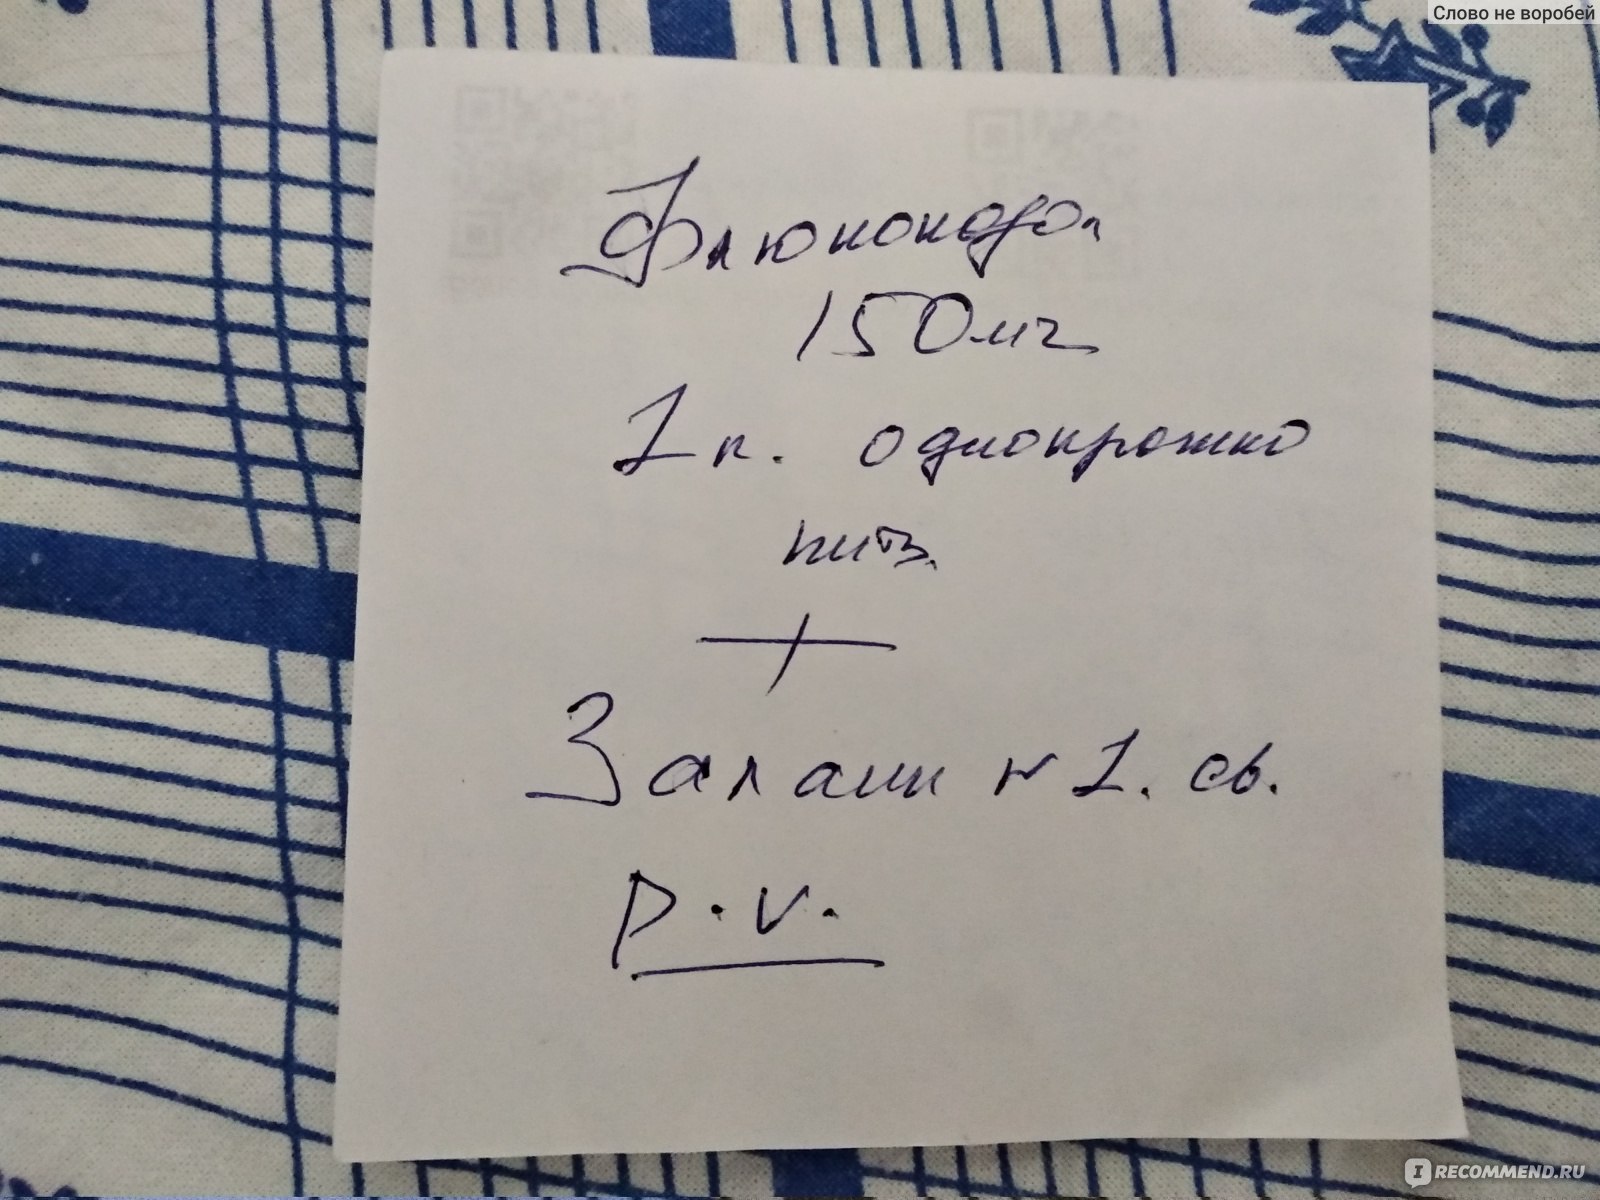 Слово не воробей
Флюконазол
150мг
1 к. однократно
пить.
+
Залаин № 1. св.
p.v.
RECOMMEND.RU